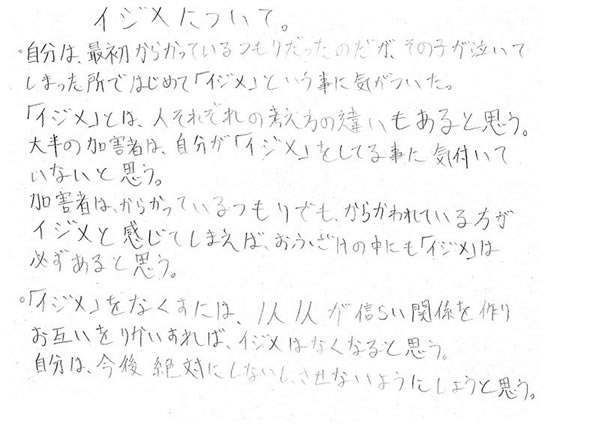 イジメについて。
・自分は、最初からかっているつもりだったのだが、その子が泣いて
しまった所ではじめて「イジメ」という事に気がついた。
「イジメ」とは、人それぞれの考え方の違いもあると思う。
大半の加害者は、自分が「イジメ」をしてる事に気付いて
いないと思う。
加害者は、からかっているつもりでも、からかわれている方が
イジメと感じてしまえば、おふざけの中にも「イジメ」は
必ずあると思う。
・「イジメ」をなくすには、1人1人が信らい関係を作り
お互いをりかいすれば、イジメはなくなると思う。
自分は、今後絶対にしないし、させないようにしようと思う。